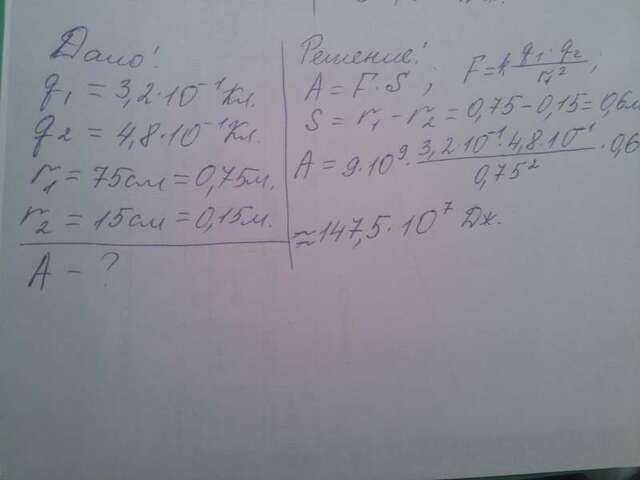 Дано!
q₁ = 3,2·10⁻¹ Кл.
q₂ = 4,8·10⁻¹ Кл.
r₁ = 75см = 0,75м.
r₂ = 15см = 0,15м.
A - ?
Решение!
A = F·S ; F = k q₁·q₂ / r₁² ;
S = r₁ - r₂ = 0,75 - 0,15 = 0,6м
A = 9·10⁹· 3,2·10⁻¹·4,8·10⁻¹ / 0,75² ·0,6
≈ 147,5·10⁷ Дж.